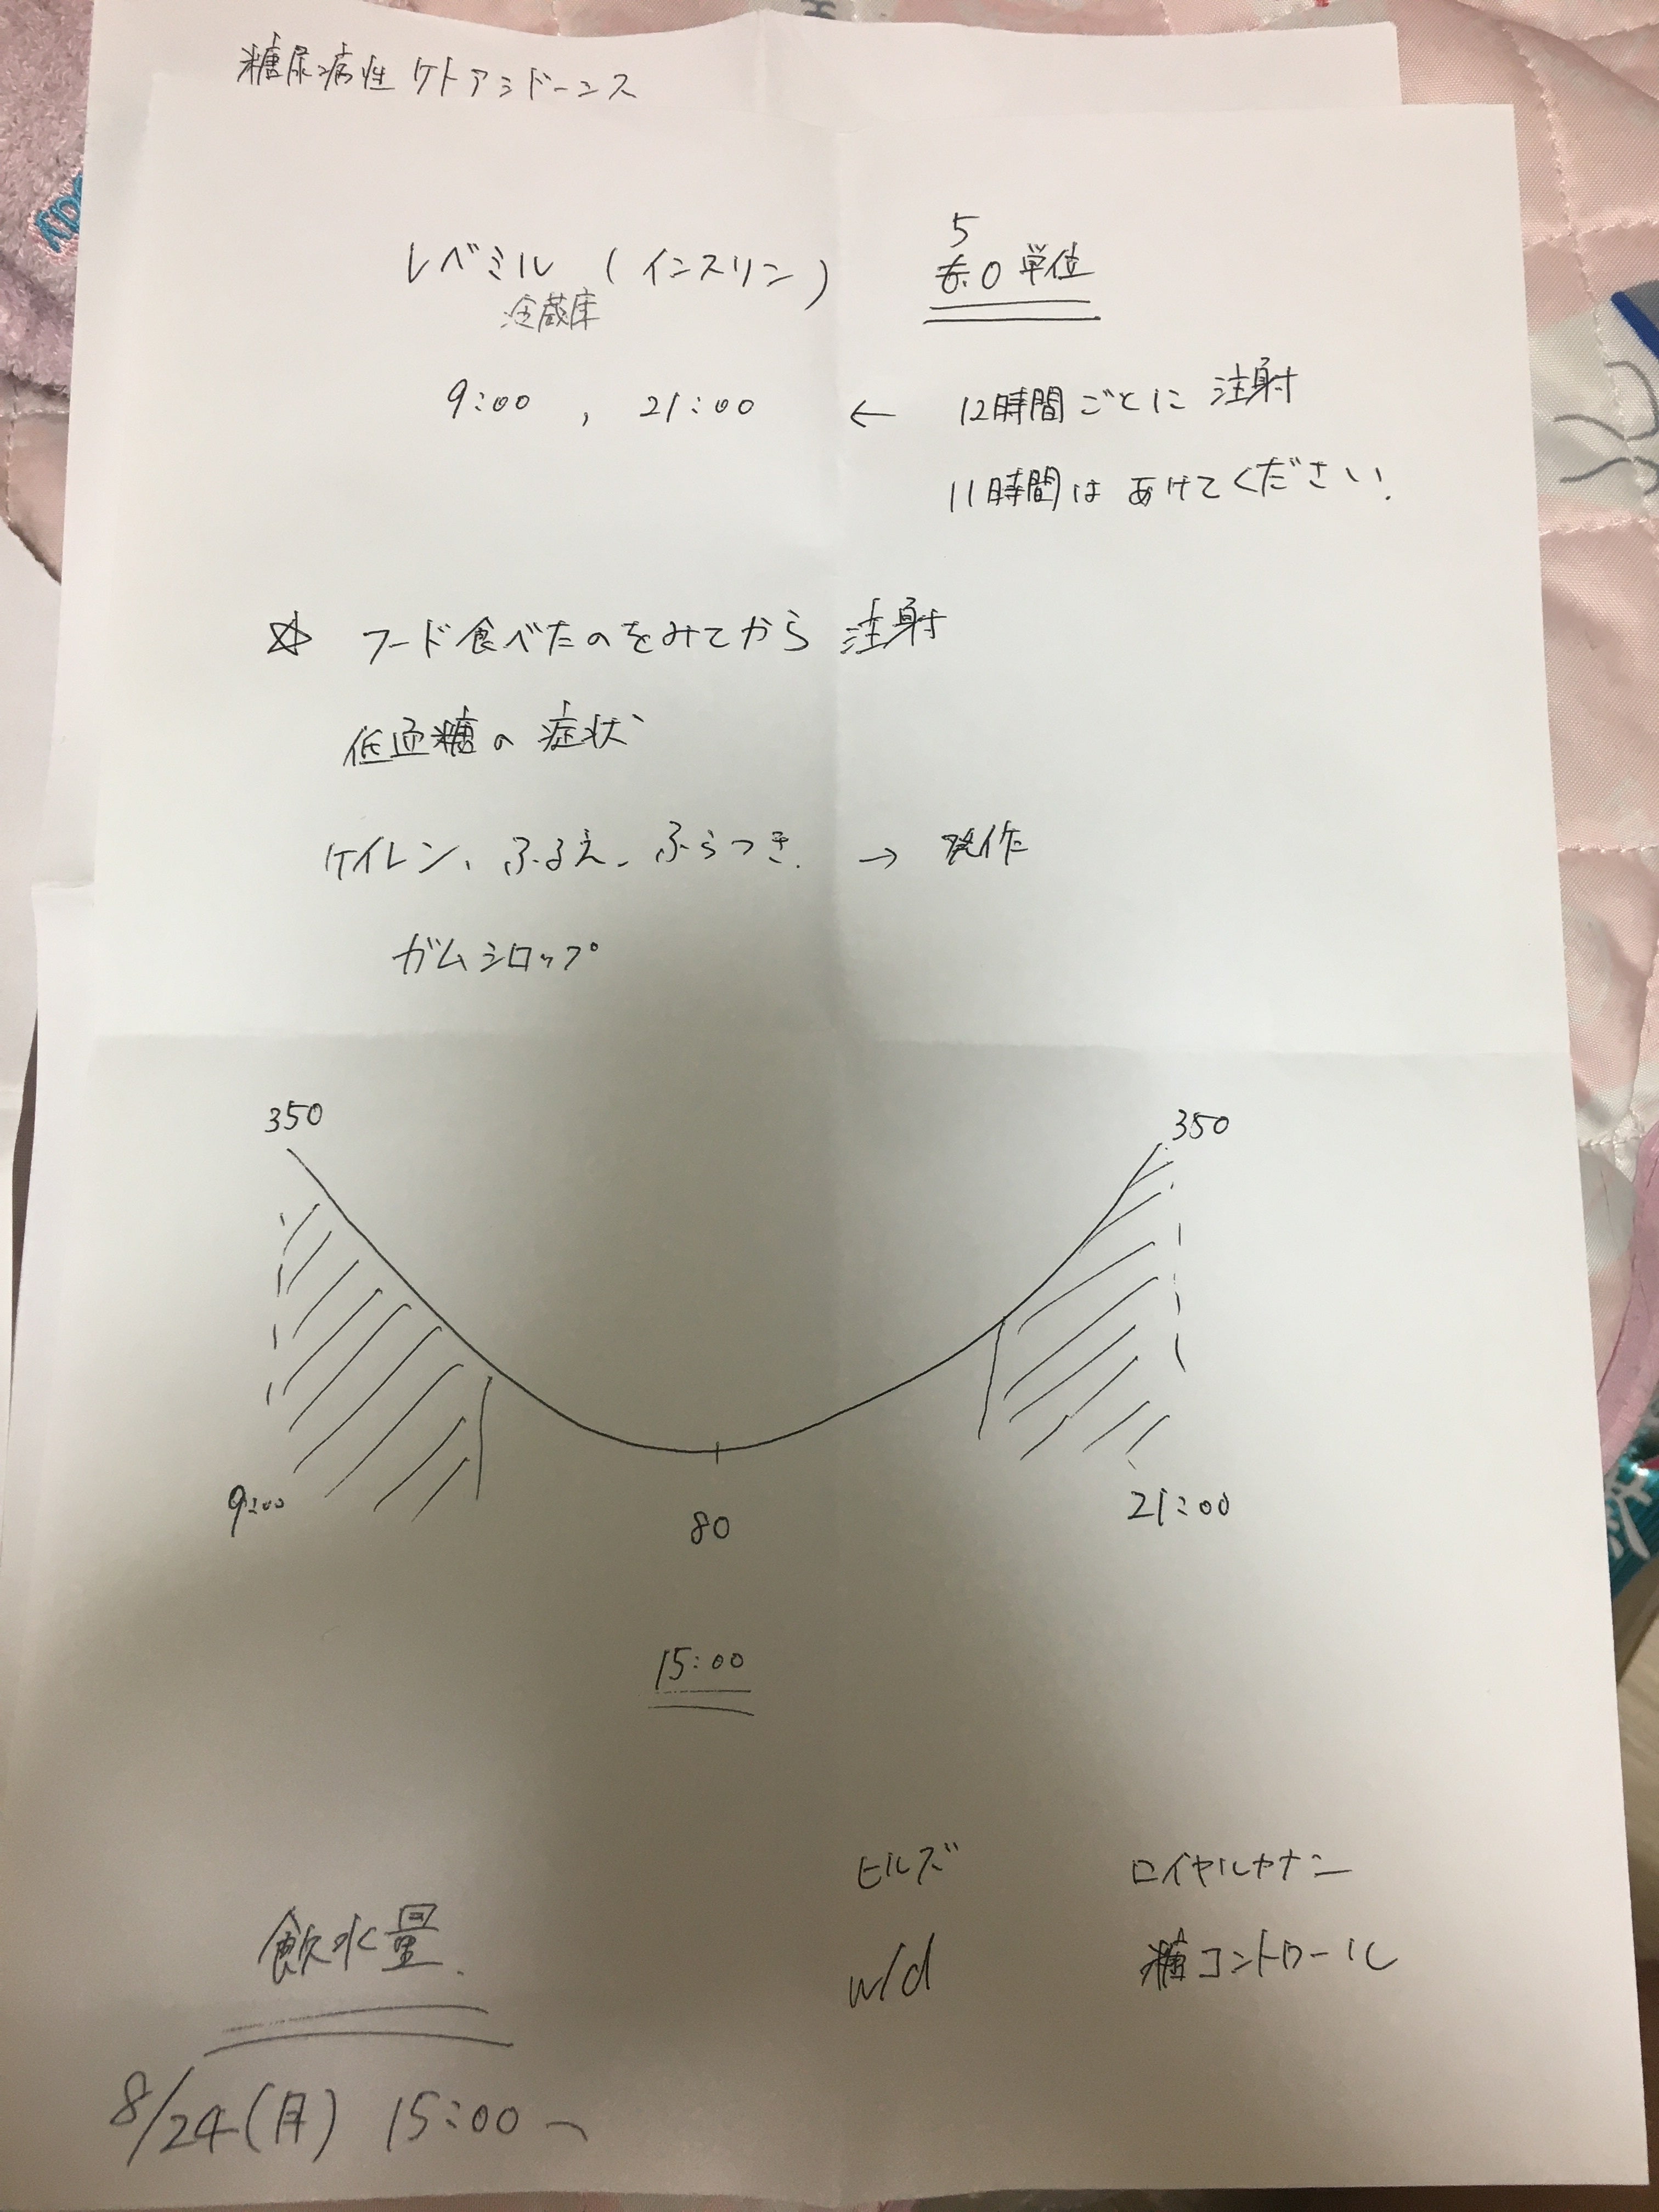 糖尿病性ケトアシドーシス
レベミル (インスリン) 5
6.0単位
冷蔵庫
9:00 , 21:00 ← 12時間ごとに 注射
11時間は あけてください.
☆ フード食べたのをみてから 注射
低血糖の症状
ケイレン、ふるえ、ふらつき. → 発作
ガムシロップ
350 350
9:00 80 21:00
15:00
ヒルズ ロイヤルカナン
飲水量. w/d 糖コントロール
8/24(月) 15:00〜